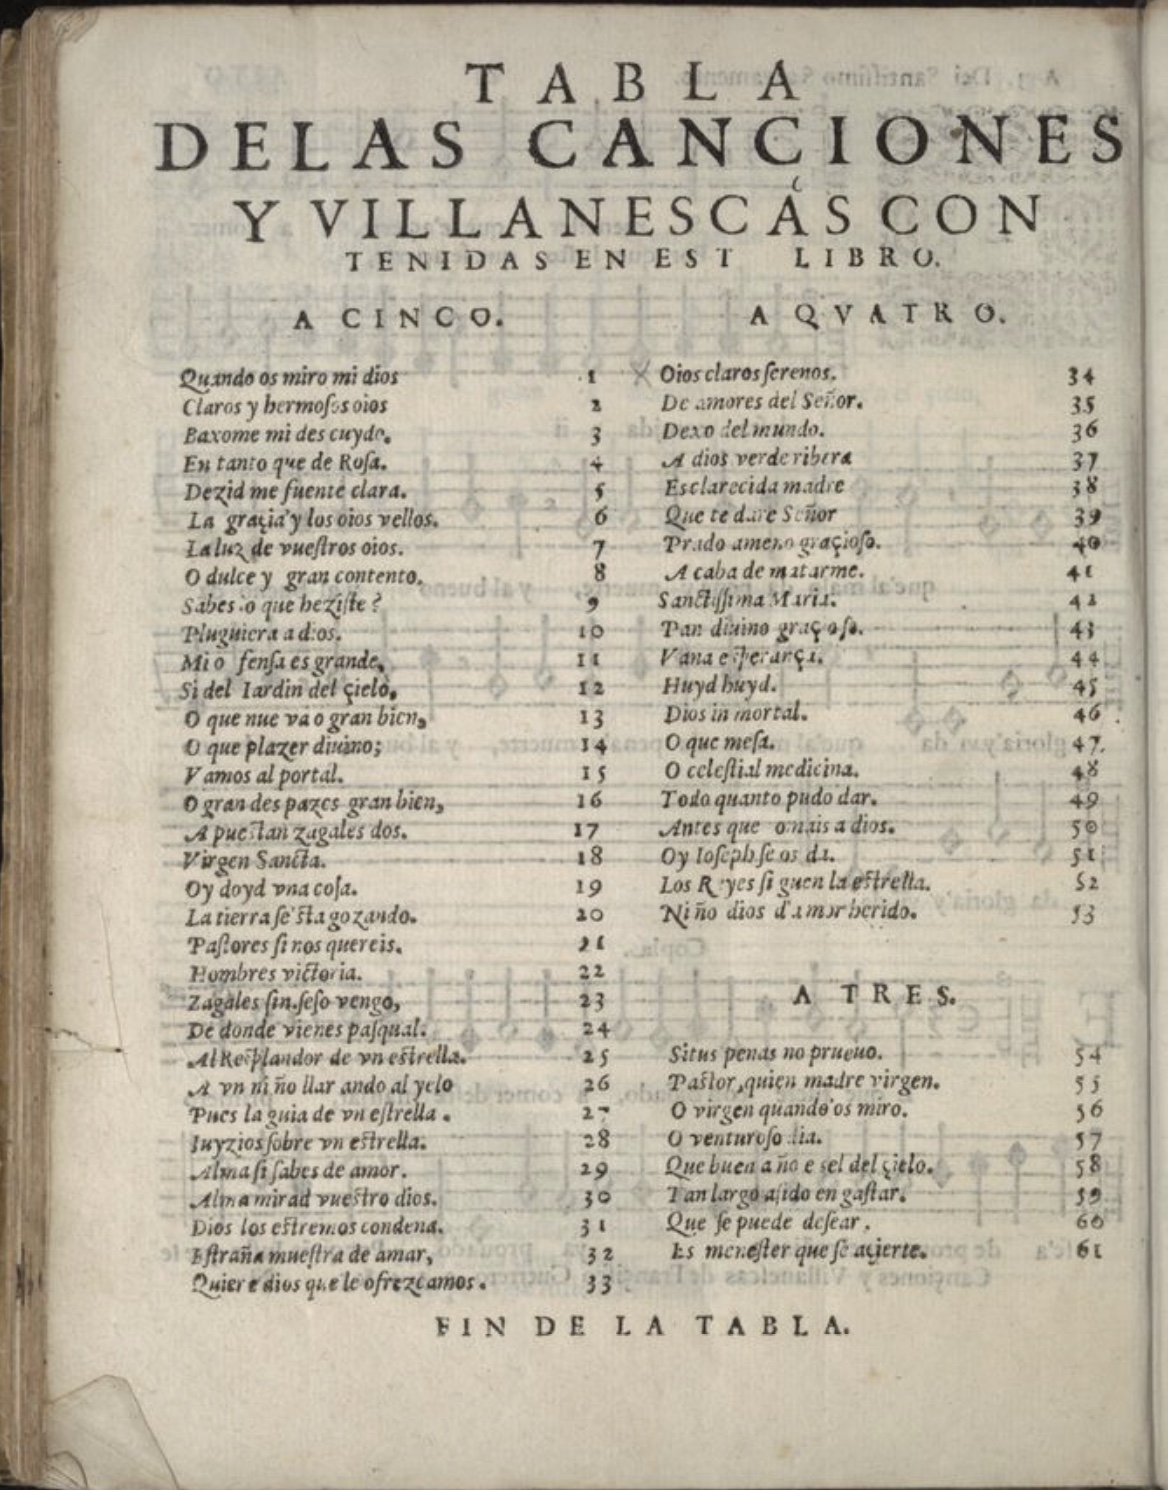 TABLA
DELAS CANCIONES
Y VILLANESCAS CON
TENIDAS EN EST LIBRO.
A CINCO.
Quando os miro mi dios 1
Claros y hermosos oios 2
Baxome mi des cuydo, 3
En tanto que de Rosa. 4
Dezid me fuente clara. 5
La graçia y los oios vellos. 6
La luz de vuestros oios. 7
O dulce y gran contento. 8
Sabes lo que heziste? 9
Pluguiera a dios. 10
Mi o fensa es grande, 11
Si del Iardin del çielo, 12
O que nue va o gran bien, 13
O que plazer diuino; 14
Vamos al portal. 15
O gran des pazes gran bien, 16
A puestan zagales dos. 17
Virgen Sancta. 18
Oy doyd vna cosa. 19
La tierra se'sta gozando. 20
Pastores si nos quereis. 21
Hombres victoria. 22
Zagales sin seso vengo, 23
De donde vienes pasqual. 24
Al Resplandor de vn estrella. 25
A vn ni ño llor ando al yelo 26
Pues la guia de vn estrella. 27
Iuyzios sobre vn estrella. 28
Alma si sabes de amor. 29
Alma mirad vuestro dios. 30
Dios los estremos condena. 31
Estraña muestra de amar, 32
Quiere dios que le ofrezcamos. 33
A QVATRO.
Oios claros serenos. 34
De amores del Señor. 35
Dexo del mundo. 36
A dios verde ribera 37
Esclarecida madre 38
Que te dare Señor 39
Prado ameno graçioso. 40
A caba de matarme. 41
Sanctissima Maria. 42
Pan diuino graçioso. 43
Vana esperança. 44
Huyd huyd. 45
Dios in mortal. 46
O que mesa. 47.
O celestial medicina. 48
Todo quanto pudo dar. 49
Antes que comais a dios. 50
Oy Ioseph se os da. 51
Los Reyes si guen la estrella. 52
Ni ño dios d'amor herido. 53
A TRES.
Si tus penas no prueuo. 54
Pastor, quien madre virgen. 55
O virgen quando os miro. 56
O venturoso dia. 57
Que buen a ño e sel del çielo. 58
Tan largo a sido en gastar. 59
Que se puede desear. 60
Es menester que se açierte. 61
FIN DE LA TABLA.